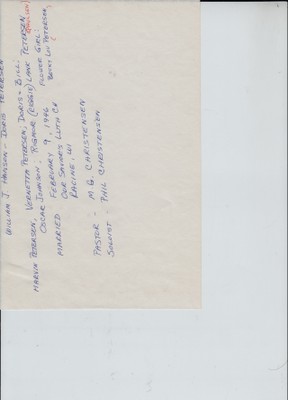 WILLIAM J. HANSON - DORIS PETERSEN
MARVIN PETERSEN, VERNETTA PETERSEN; DORIS - BILL;
OSCAR JOHNSON; LANK PETERSEN
FLOWER GIRL:
BECKY LOU PETERSEN
MARRIED - FEBRUARY 9, 1946
OUR SAVIORS LUTH CH
RACINE, WI
PASTOR - M. G. CHRISTENSEN
SOLOIST - PHIL CHRISTENSEN